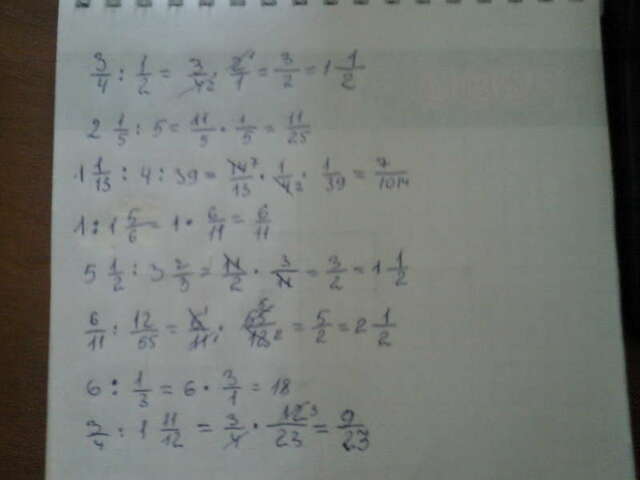 3/4 : 1/2 = 3/4₂ · 2¹/1 = 3/2 = 1 1/2
2 1/5 : 5 = 11/5 · 1/5 = 11/25
1 1/13 : 4 : 39 = 14⁷/13 · 1/4₂ · 1/39 = 7/1014
1 : 1 5/6 = 1 · 6/11 = 6/11
5 1/2 : 3 2/3 = 11/2 · 3/11 = 3/2 = 1 1/2
6/11 : 12/55 = 6/11 · 55⁵/12₂ = 5/2 = 2 1/2
6 : 1/3 = 6 · 3/1 = 18
3/4 : 1 11/12 = 3/4 · 12³/23 = 9/23